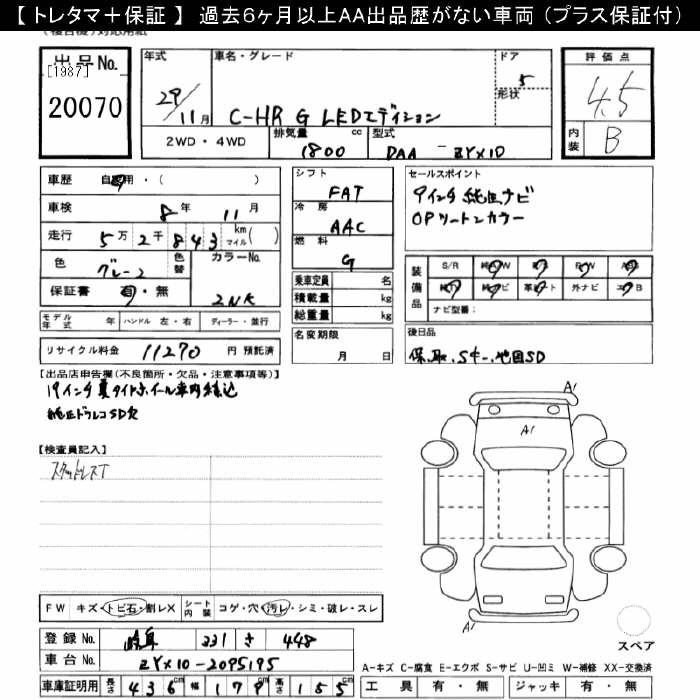 【 トレタマ＋保証 】 過去６ヶ月以上ＡＡ出品歴がない車両（プラス保証付）
出品No. [1987]
20070
年式 29/11月
車名・グレード
C-HR G LEDエディション
ドア 5
形状
2WD・4WD
排気量 1800 cc
型式 DAA-ZYX10
評価点 4.5
内装 B
車歴 自家用・( )
車検 8年 11月
走行 5万2千843 km マイル( )
色 グレー2 色替 カラーNo. 2NK
保証書 有・無
モデル年式 年 ハンドル 左・右 ディーラー・並行
リサイクル料金 11270 円 預託済
シフト FAT
冷房 AAC
燃料 G
乗車定員 名
積載量 kg
総重量 kg
名変期限
月 日
セールスポイント
9インチ純正ナビ
OPツートンカラー
装備品 S/R
外ナビ
ナビ型番：
後日品
保、取、Sキー、地図SD
【出品店申告欄(不良箇所・欠品・注意事項等)】
純正ドラレコSD欠
【検査員記入】
スタッドレスT
FW キズ・トビ石・割レX シート内装 コゲ・穴・汚レ・シミ・破レ・スレ
登録No. 岐阜 331 さ 448
車台No. ZYX10-2095195
車庫証明用 長さ 436cm 幅 179cm 高さ 155cm
A1
A1
A1
スペア
A-キズ C-腐食 E-エクボ S-サビ U-凹ミ W-補修 XX-交換済
工具 有・無 ジャッキ 有・無